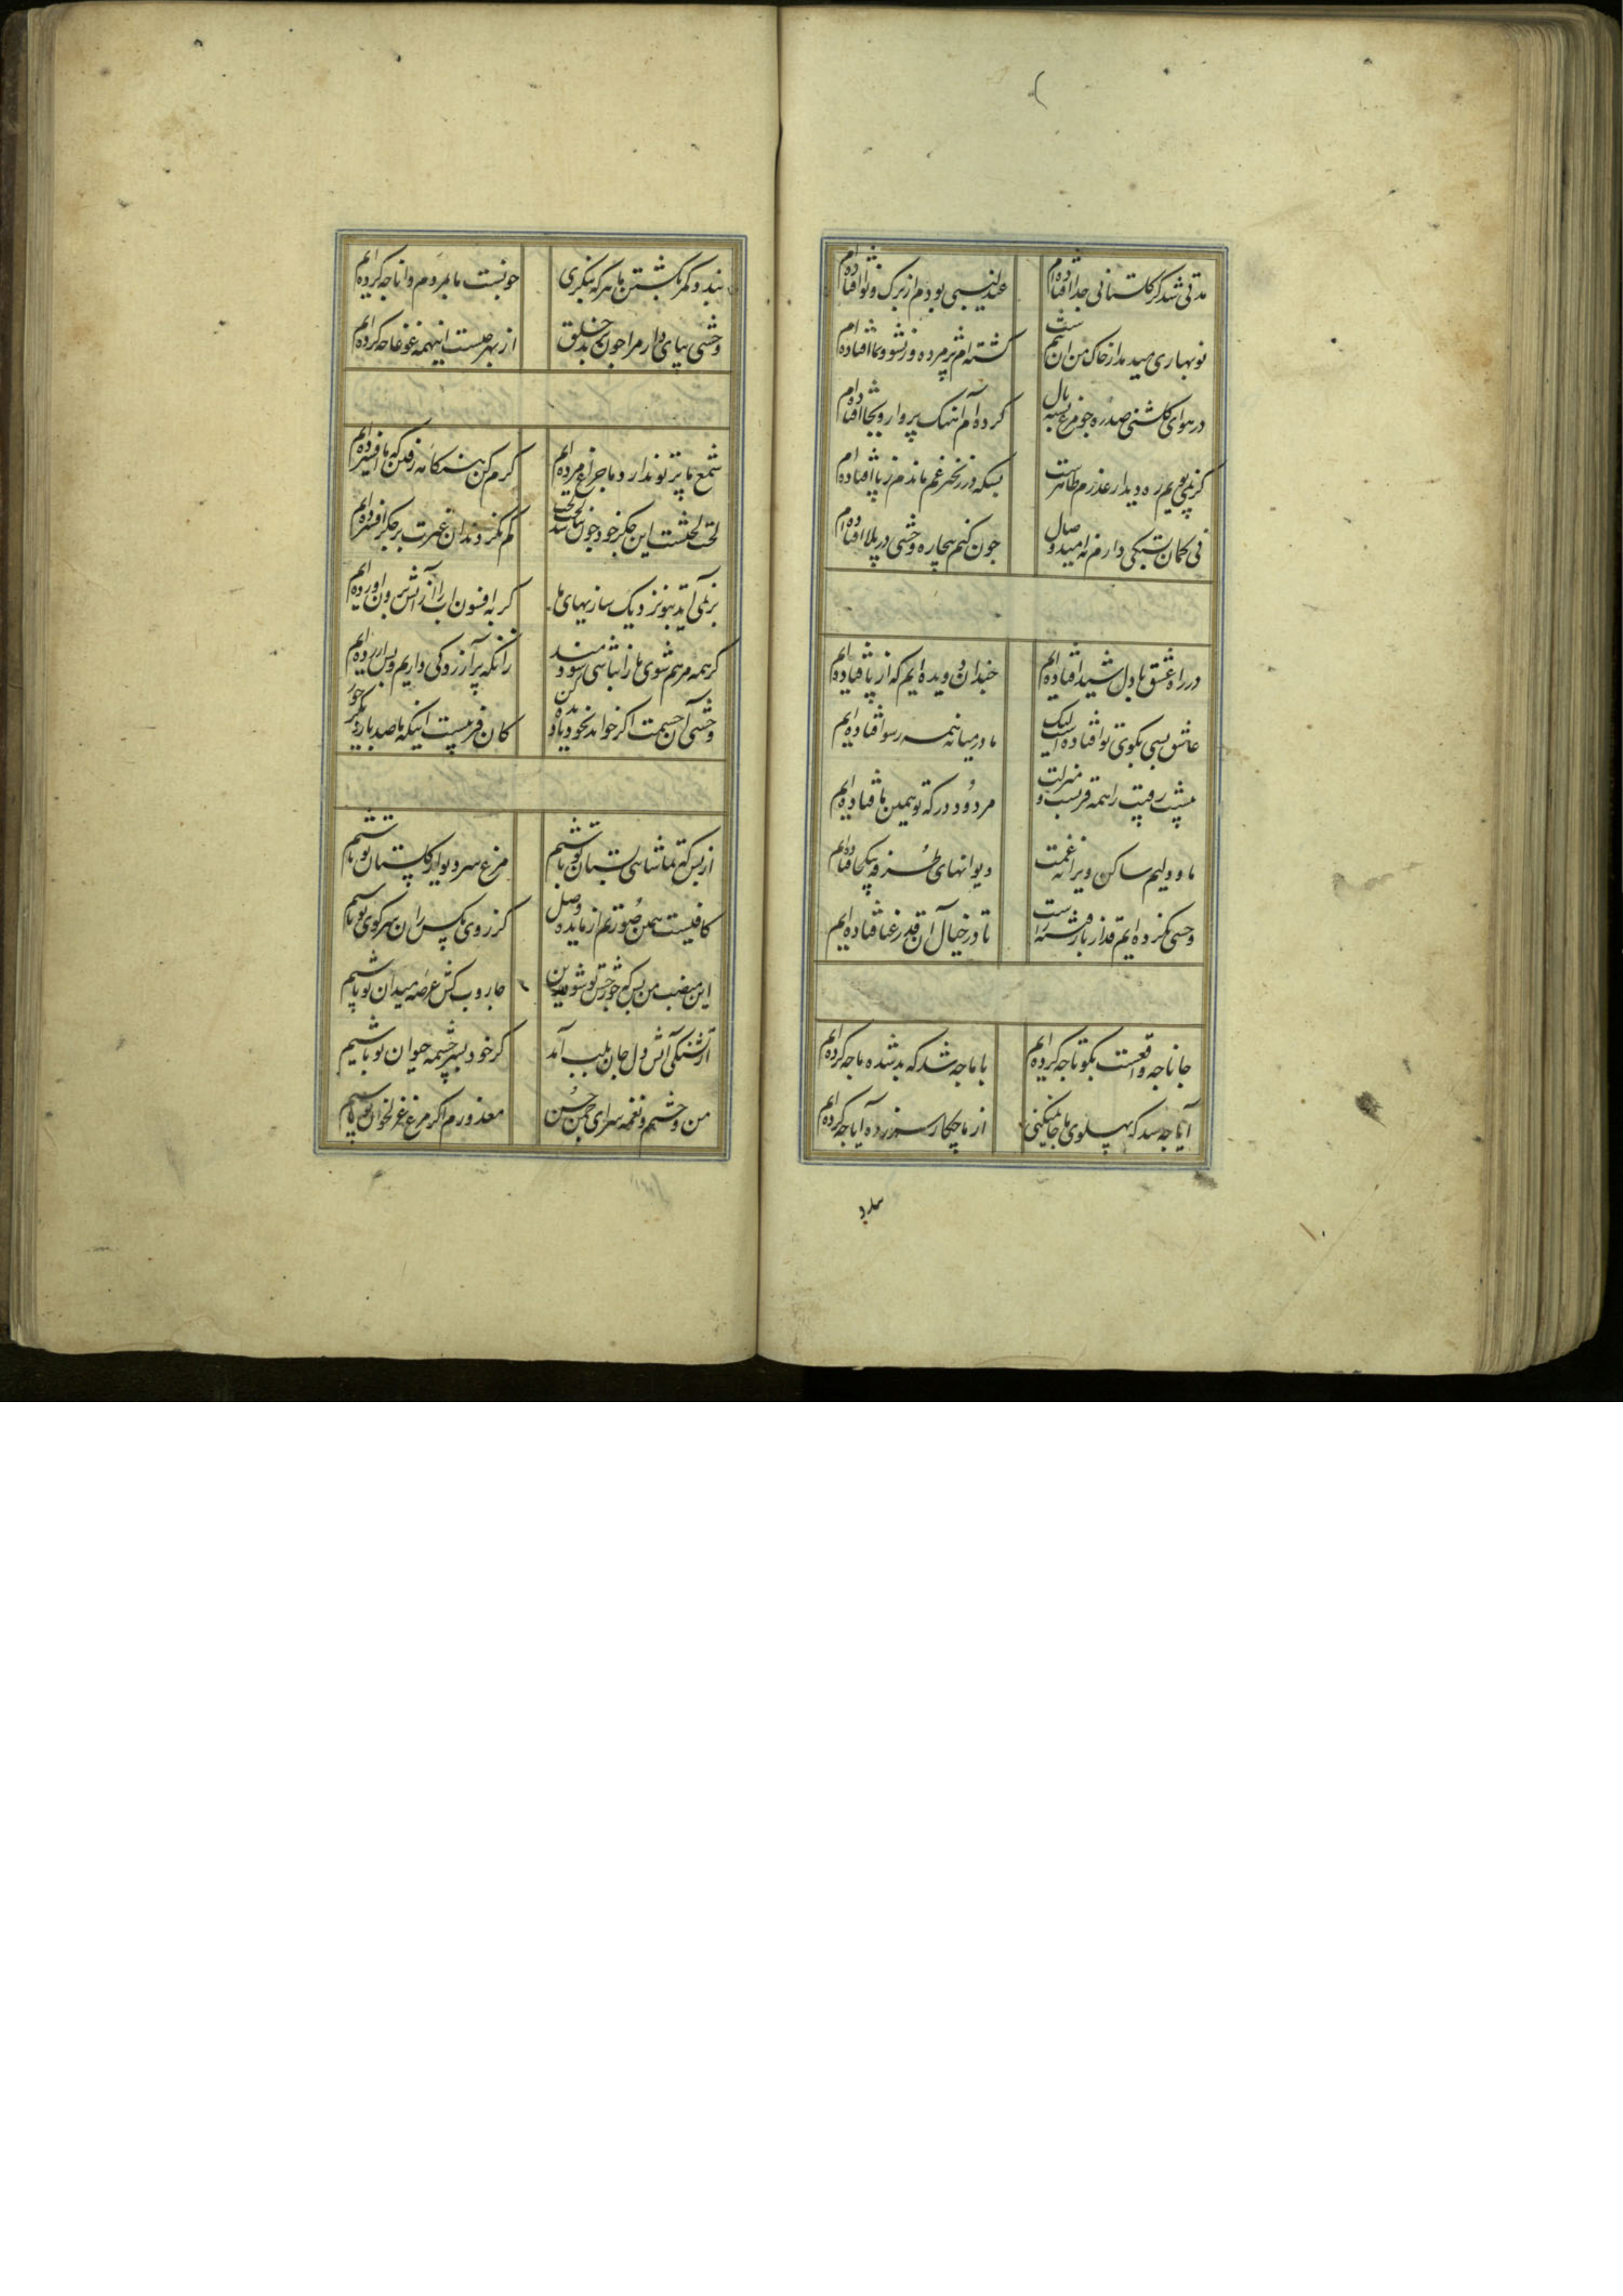 مدتی شد کز گلستانی جدا افتاده‌ام
عندلیبی بودم از برگ و نوا افتاده‌ام
نوبهاری میدمد از خاک من آن
گشته‌ام پژمرده وز نشو و نما افتاده‌ام
در هوای گلشنی صد ره چو مرغ بسته بال
کرده‌ام آهنگ پرواز و بجا افتاده‌ام
گر نمی پویم ره دیدار عذرم ظاهرست
بسکه در زنجیر غم ماندم ز پا افتاده‌ام
نی گمان تسکی دارم نه امید وصال
چون کنم بیچاره وحشی در بلا افتاده‌ام
در راه عشق با دل شیدا فتاده‌ایم
چندان دویده‌ایم که از پا فتاده‌ایم
عاشق بسی بکوی تو افتاده است لیک
ما در میانه همه رسوا فتاده‌ایم
پیشت رقیب را همه قربست و منزلت
مردود درگه تو همین ما فتاده‌ایم
ما و دلیم ساکن ویرانه غمت
دیوانهای طرفه بیکجا فتاده‌ایم
وحشی نکرده‌ایم قد از بار فتنه راست
تا در خیال آن قد رعنا فتاده‌ایم
جانا چه واقعست بگو تا چه کرده‌ایم
با ما چه شد که بد شده ما چه کرده‌ایم
آیا چه شد که پهلوی ما جا نمیکنی
از ما چکار سر زده آیا چه کرده‌ایم
بندد کمر بکشتن ما هر که بنگری
چونست ما بمردم دانا چه کرده‌ایم
وحشی بپای دار مرا چون برند خلق
از بهر چیست اینهمه غوغا چه کرده‌ایم
شمع ما پرتو ندارد ما چراغ مرده‌ایم
گرم کن هنگامه دیگر که ما افسرده‌ایم
لخت لخشت این جگر خود چون نباشد لخت
کم مگر دندان غیرت بر جگر افشرده‌ایم
بر نمی آید بنوز دیک سازیهای ما
گر به افسون آب از آتش برون آورده‌ایم
گر همه مرهم شوی ما را نباشی سودمند
زانکه پر آزردگی داریم و بس آزرده‌ایم
وحشی آن چشمت اگر خواند بخود نادیده کن
کان فریبست اینکه ما صد بار دیگر خورده‌ایم
از بس که تماشایی بستان تو باشم
مرغ سر دیوار گلستان تو باشم
کافیست همین صورتم از مایده وصل
کز روی مگس ران سر کوی تو باشم
این منصب من بس که چو رخش تو شود زین
جاروب کش عرصه میدان تو باشم
از تشنگی آتش دل جان بلب آمد
گر خود بسر چشمه حیوان تو باشم
من وحشیم و نغمه سرای چمن حسن
معذورم اگر مرغ غزلخوان تو باشم